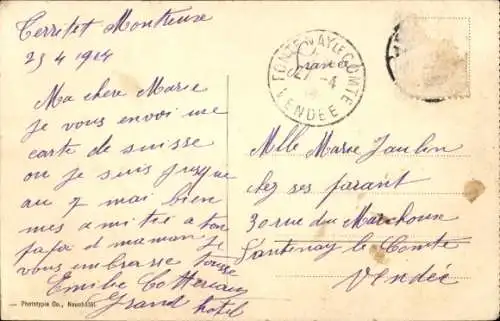 Territet Montreuse
25 4 1914
Ma chere Marie
Je vous envoi une
carte de suisse
ou je suis jusque
au 7 mai bien
mes amitié a ton
papa et maman Je
vous embrasse tousse
Emilie Cottereau
Grand hotel
Phototypie Co., Neuchâtel.
FONTENAY-LE-COMTE
VENDÉE
France
Mlle Marie Jaulin
chez ses parant
30 rue du Marchoux
Fantenay le Comte
Vendée